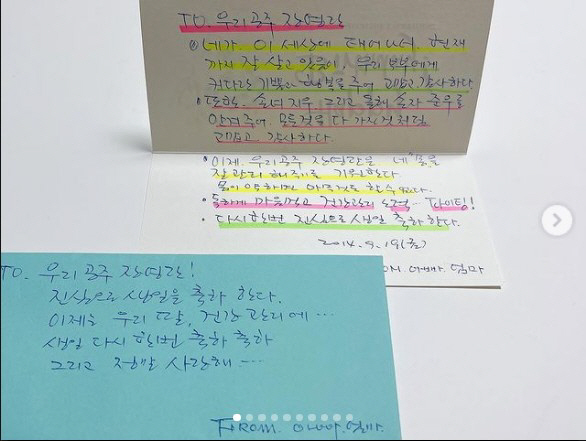 TO. 우리 공주 장영란
네가 이 세상에 태어나서, 현재
까지 잘 살고 있음이, 우리 부부에게
커다란 기쁨과 행복을 주어 고맙고 감사하다
또한, 손녀 지우, 그리고 올해 손자 준우를
안겨주어, 모든것을 다 가진것처럼
고맙고 감사하다.
이제, 우리공주 장영란은 네 몸을
잘 관리 해주기를 기원한다
몸이 약하면 아무것도 할수 없다.
독하게 마음먹고 건강관리 노력 - 파이팅!
다시한번 진심으로 생일 축하 한다.
2014. 9. 19(금)
아빠. 엄마
TO. 우리 공주 장영란!
진심으로 생일을 축하 한다.
이제는 우리 딸, 건강 관리에 ...
생일 다시 한번 축하 축하
그리고 정말 사랑해 ....
FROM. 아빠. 엄마.